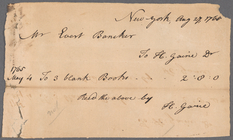 New-York Aug 27 1765
Mr Evert Bancker
To H. Gaine Dr
1765
May 4 To 3 blank Books 2 : 8 : 0
Recd the above by
H. Gaine